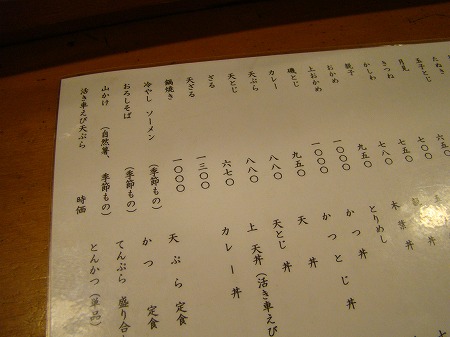 たぬき 六五〇
玉子とじ 七〇〇
月見
きつね 七五〇
かしわ 九五〇
親子
おかめ
上おかめ 一〇〇〇
磯とじ 一〇〇〇
カレー 九五〇
天ぷら 八八〇
天とじ 八八〇
ざる 六七〇
天ざる 一三〇〇
鍋焼き 一〇〇〇
冷やし ソーメン (季節もの)
おろしそば (季節もの)
山かけ (自然薯、季節もの)
活き車えび天ぷら 時価
木葉丼
とりめし
かつ丼
かつとじ丼
天丼
天とじ丼
上天丼(活き車えび
カレー丼
天ぷら 定食
かつ 定食
てんぷら 盛り合
とんかつ(単品)